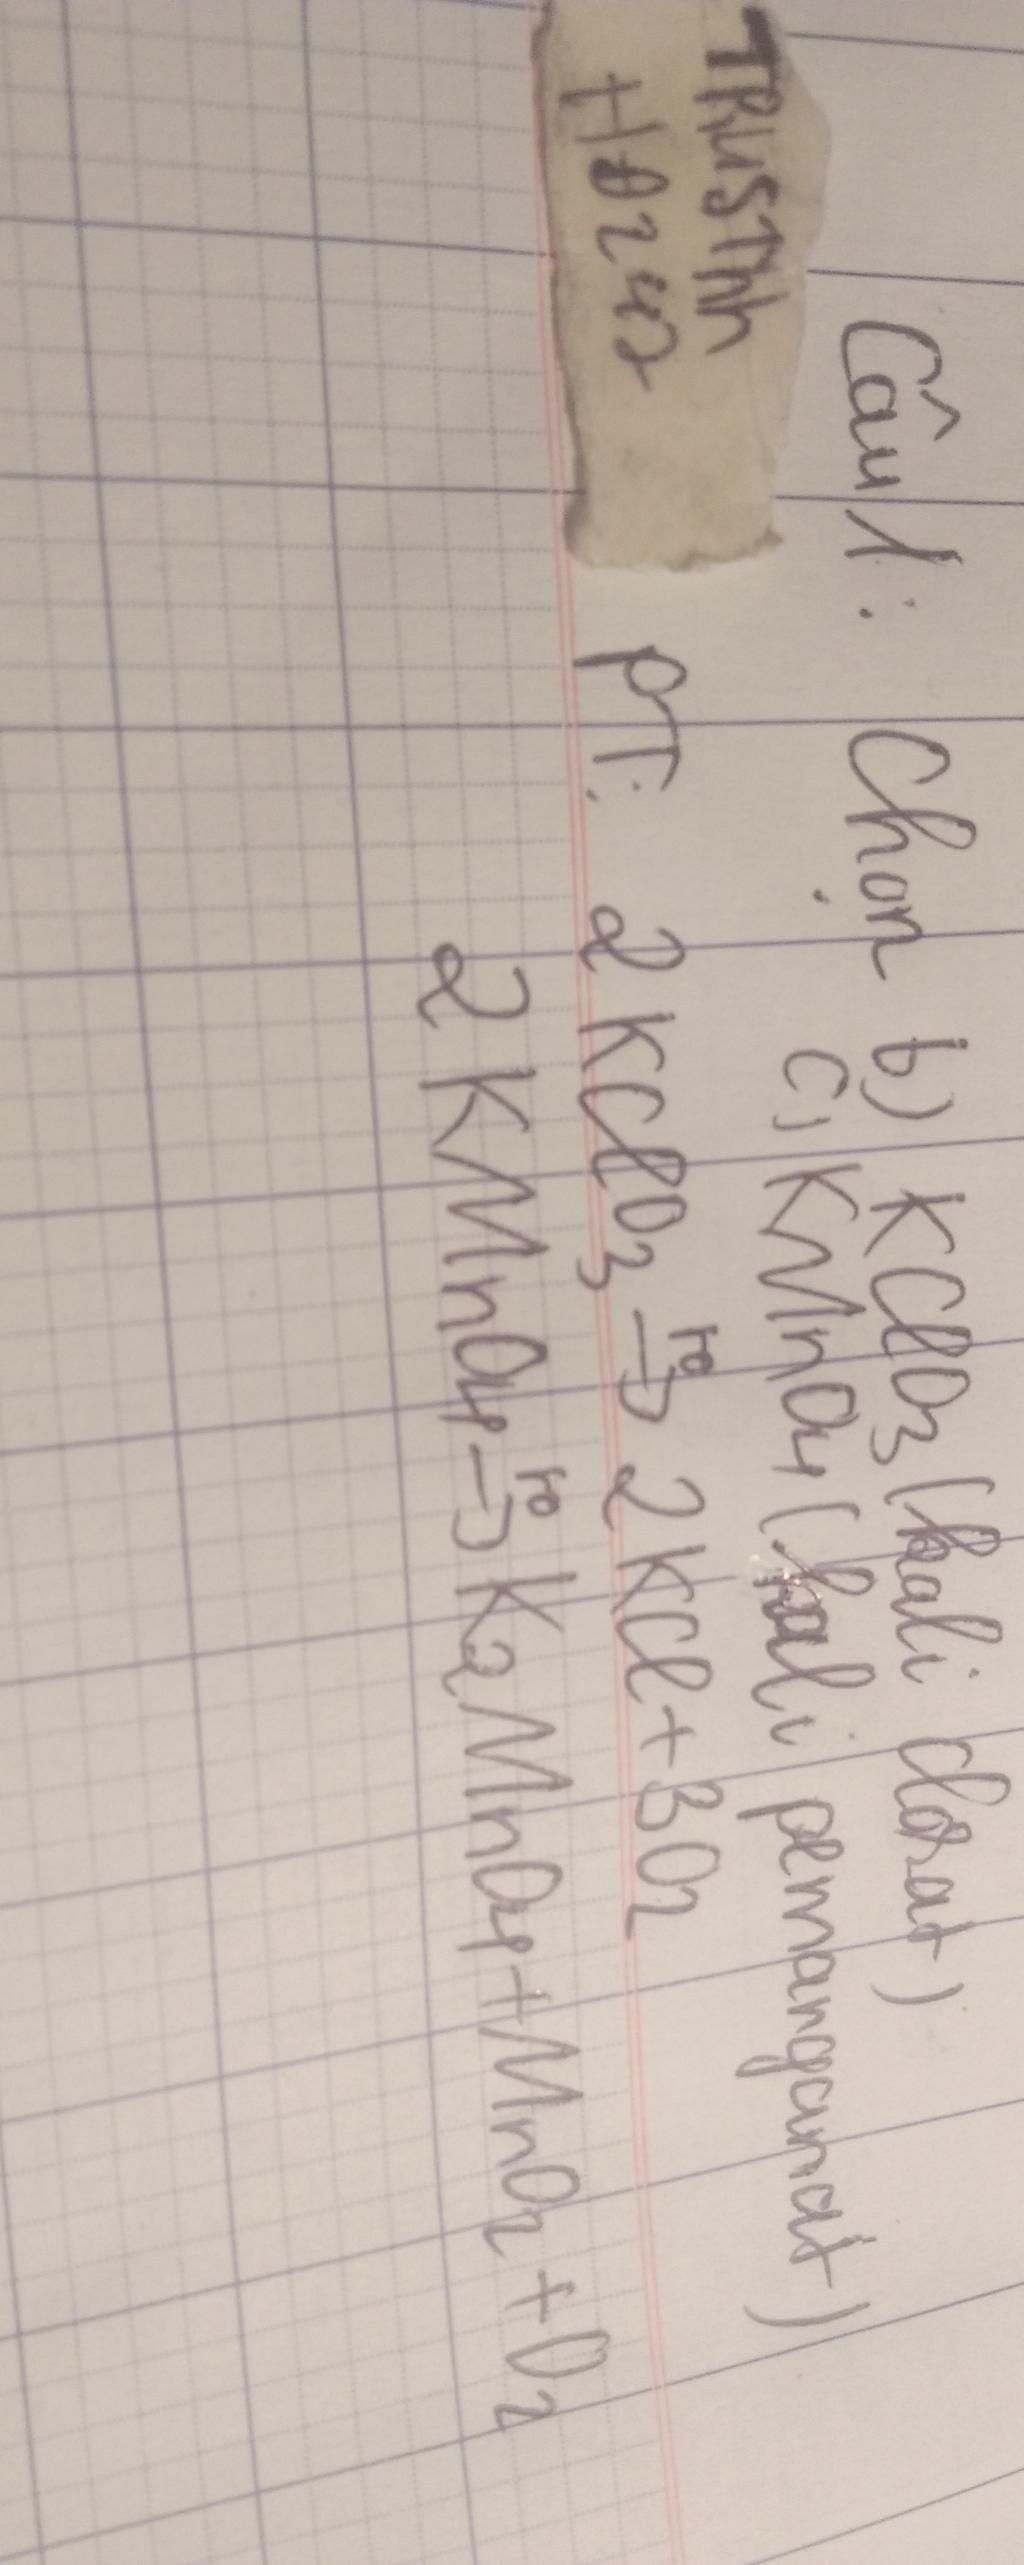 TRUSTNh
HD247
Câu 1: Chọn b) KClO3 (kali clorat)
c) KMnO4 (kali pemanganat)
PT: 2KClO3 -to-> 2KCl + 3O2
2KMnO4 -to-> K2MnO4 + MnO2 + O2